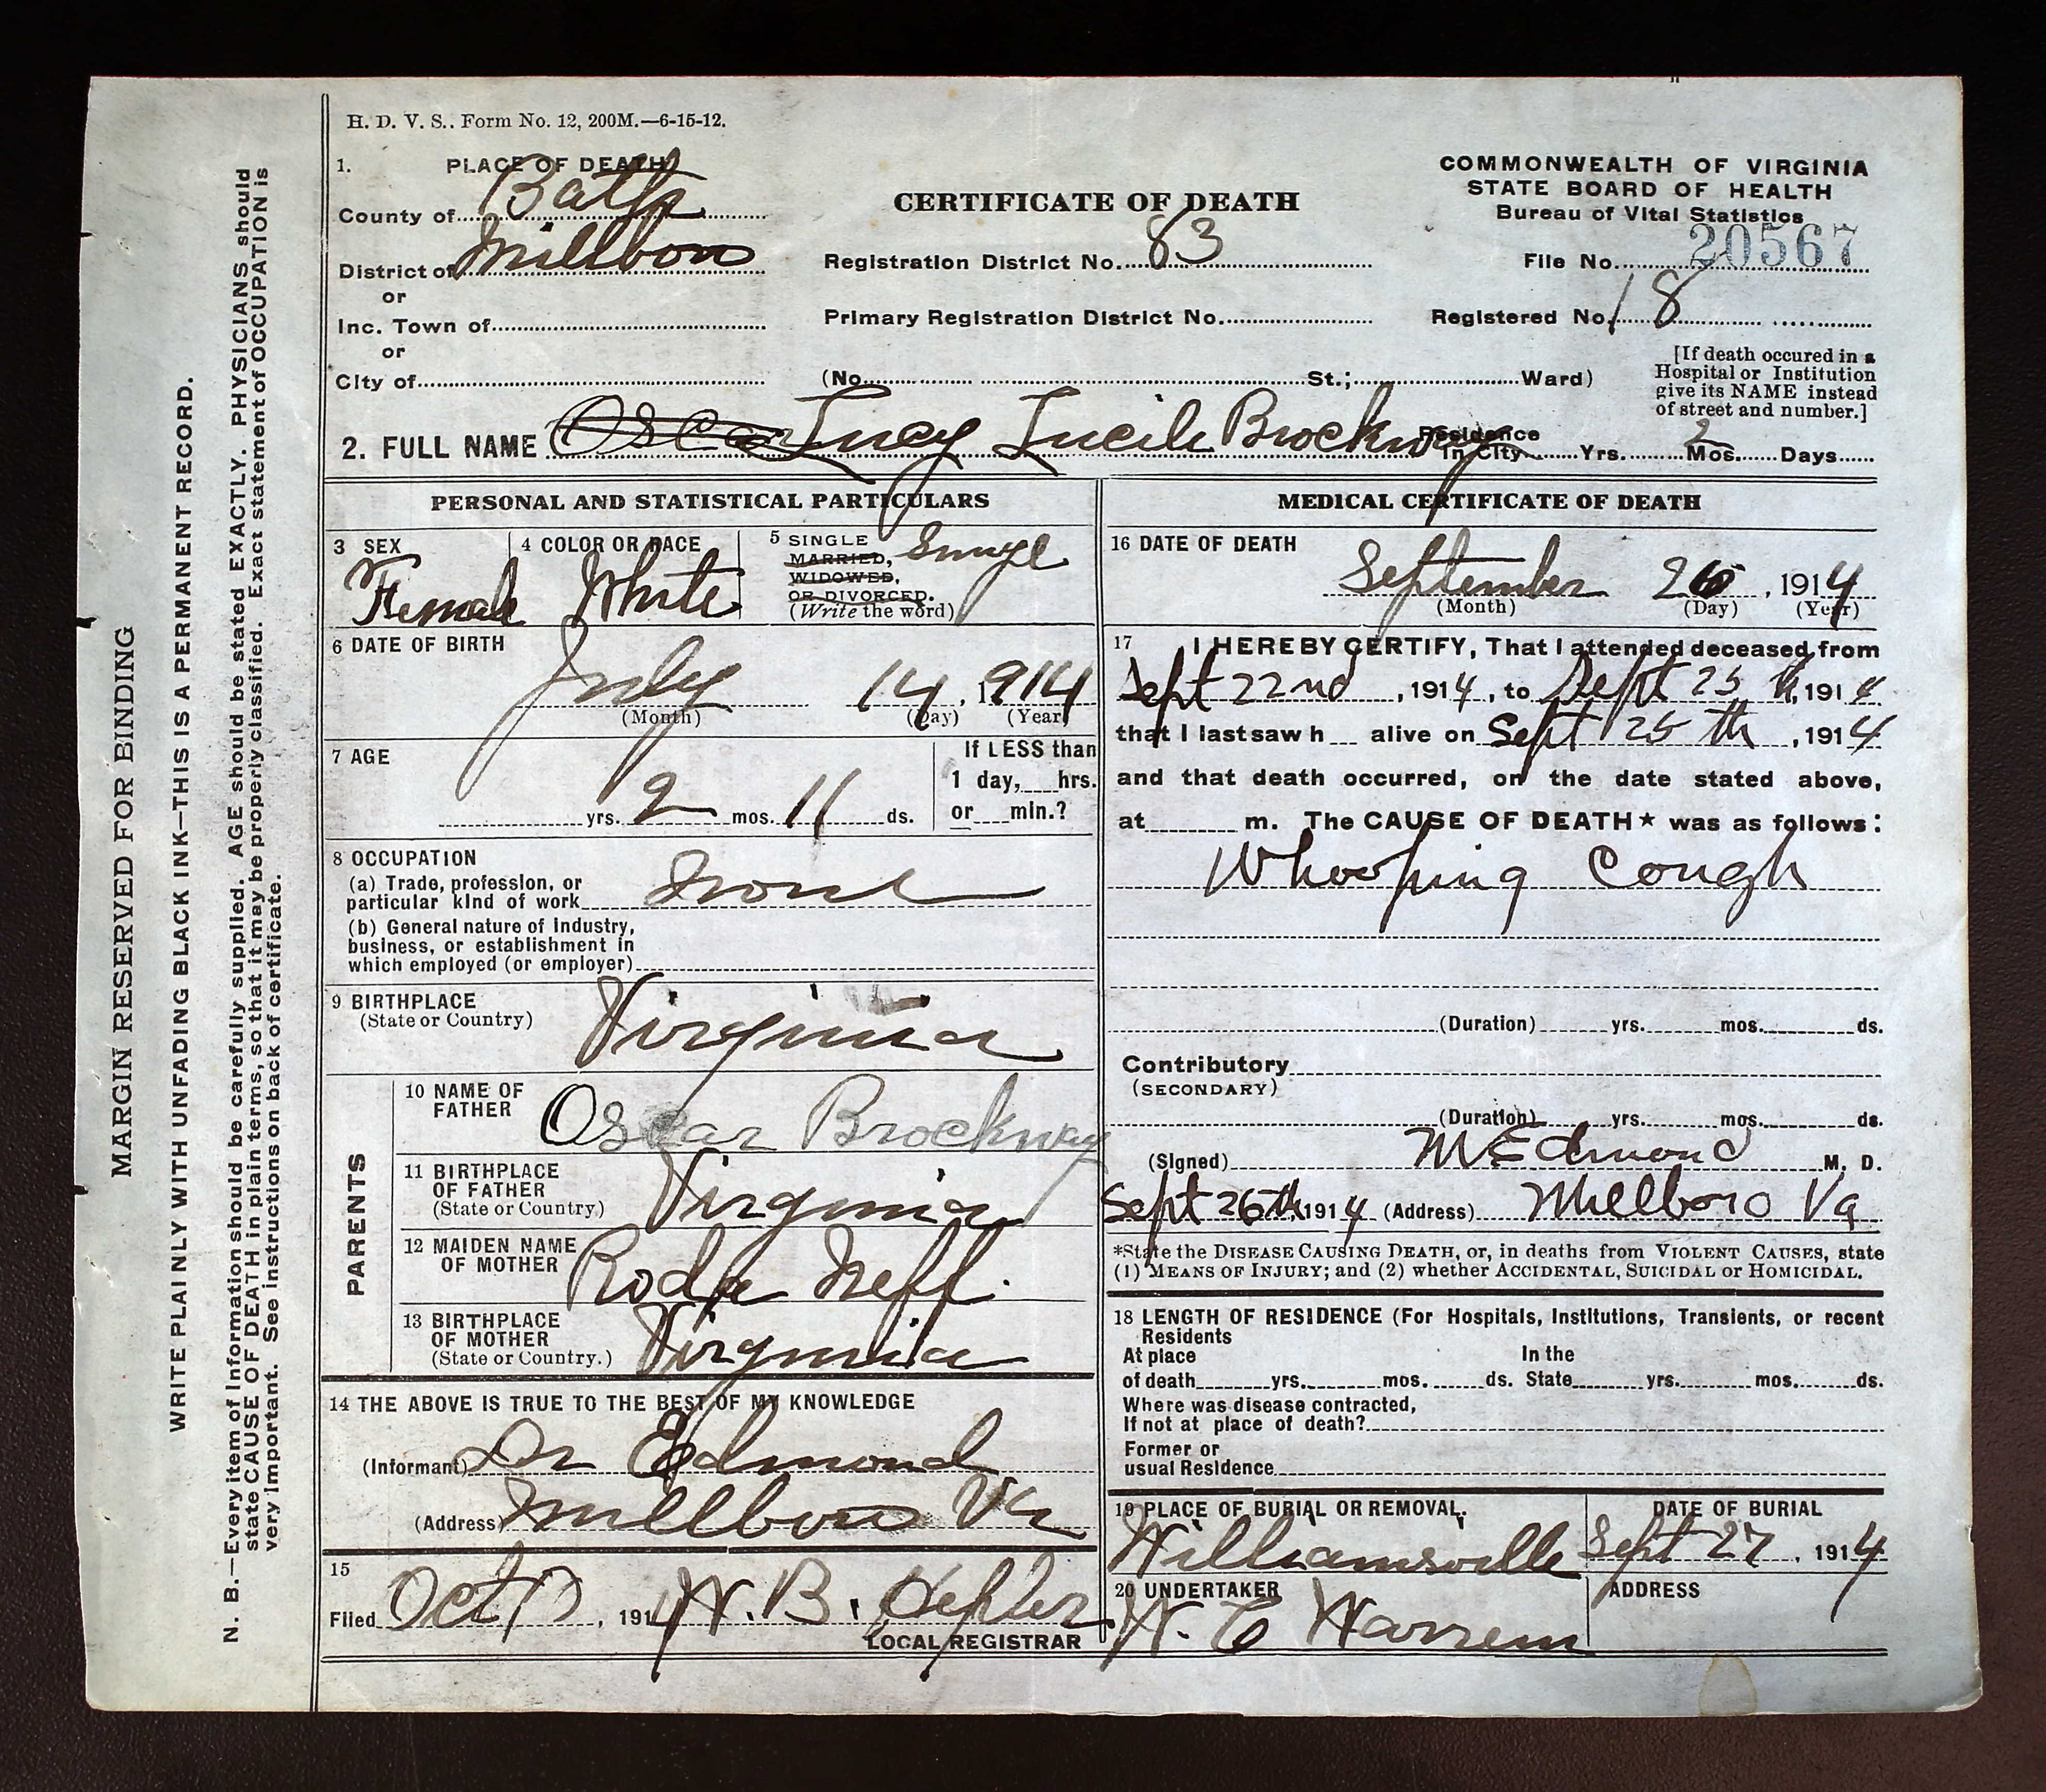 H. D. V. S.. Form No. 12, 200M.—6-15-12.
1. PLACE OF DEATH
County of Bath
District of Millboro
or
Inc. Town of
or
City of
CERTIFICATE OF DEATH
Registration District No. 83
Primary Registration District No.
(No. St.; Ward)
COMMONWEALTH OF VIRGINIA
STATE BOARD OF HEALTH
Bureau of Vital Statistics
File No. 20567
Registered No. 18
[If death occured in a
Hospital or Institution
give its NAME instead
of street and number.]
2. FULL NAME Oscar Lucy Lucile Brockway Residence In City Yrs. 2 Mos. Days
PERSONAL AND STATISTICAL PARTICULARS
3 SEX Female
4 COLOR OR RACE White
5 SINGLE
MARRIED,
WIDOWED,
OR DIVORCED.
(Write the word) Single
6 DATE OF BIRTH
July 14, 1914
(Month) (Day) (Year)
7 AGE
yrs. 2 mos. 11 ds.
If LESS than
1 day, hrs.
or min.?
8 OCCUPATION
(a) Trade, profession, or
particular kind of work None
(b) General nature of Industry,
business, or establishment in
which employed (or employer)
9 BIRTHPLACE
(State or Country) Virginia
PARENTS
10 NAME OF
FATHER Oscar Brockway
11 BIRTHPLACE
OF FATHER
(State or Country) Virginia
12 MAIDEN NAME
OF MOTHER Roda Neff.
13 BIRTHPLACE
OF MOTHER
(State or Country.) Virginia
14 THE ABOVE IS TRUE TO THE BEST OF MY KNOWLEDGE
(Informant) Dr Edmond
(Address) Millboro Va
15
Filed Oct, 1914 W. B.
LOCAL REGISTRAR
MEDICAL CERTIFICATE OF DEATH
16 DATE OF DEATH
September 26, 1914
(Month) (Day) (Year)
17 I HEREBY CERTIFY, That I attended deceased from
Sept 22nd, 1914, to Sept 25th, 1914
that I last saw h alive on Sept 25th, 1914
and that death occurred, on the date stated above,
at m. The CAUSE OF DEATH* was as follows:
Whooping Cough
(Duration) yrs. mos. ds.
Contributory
(SECONDARY)
(Duration) yrs. mos. ds.
(Signed) M Edmond M. D.
Sept 26th, 1914 (Address) Millboro Va
*State the DISEASE CAUSING DEATH, or, in deaths from VIOLENT CAUSES, state
(1) MEANS OF INJURY; and (2) whether ACCIDENTAL, SUICIDAL or HOMICIDAL.
18 LENGTH OF RESIDENCE (For Hospitals, Institutions, Transients, or recent
Residents
At place In the
of death yrs. mos. ds. State yrs. mos. ds.
Where was disease contracted,
If not at place of death?
Former or
usual Residence
19 PLACE OF BURIAL OR REMOVAL.
Williamsville
DATE OF BURIAL
Sept 27, 1914
20 UNDERTAKER
W. C Warren
ADDRESS
MARGIN RESERVED FOR BINDING
WRITE PLAINLY WITH UNFADING BLACK INK—THIS IS A PERMANENT RECORD.
N. B.—Every item of Information should be carefully supplied. AGE should be stated EXACTLY. PHYSICIANS should
state CAUSE OF DEATH in plain terms, so that it may be properly classified. Exact statement of OCCUPATION is
very Important. See instructions on back of certificate.